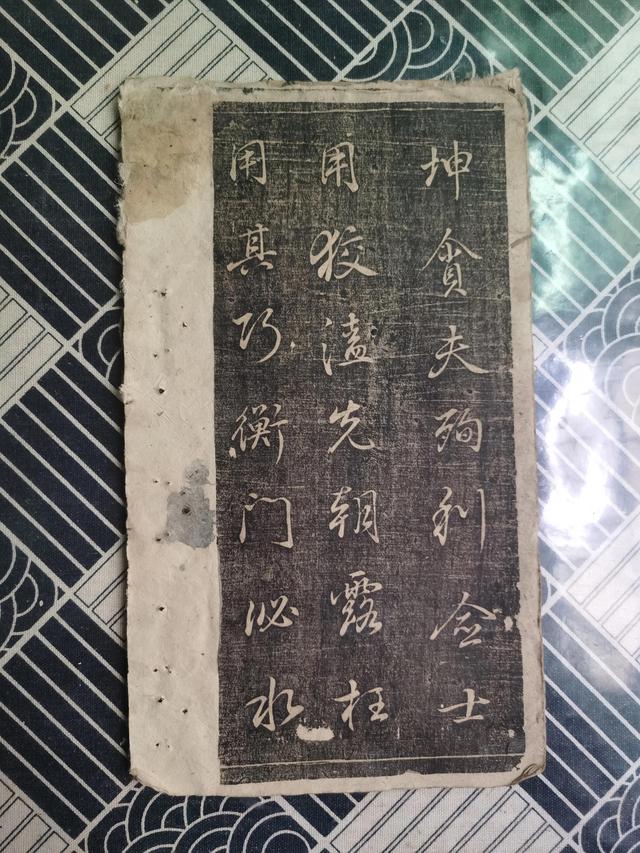 坤貪夫殉利佥士
用狡溘先朝露枉
用其巧衡门泌水